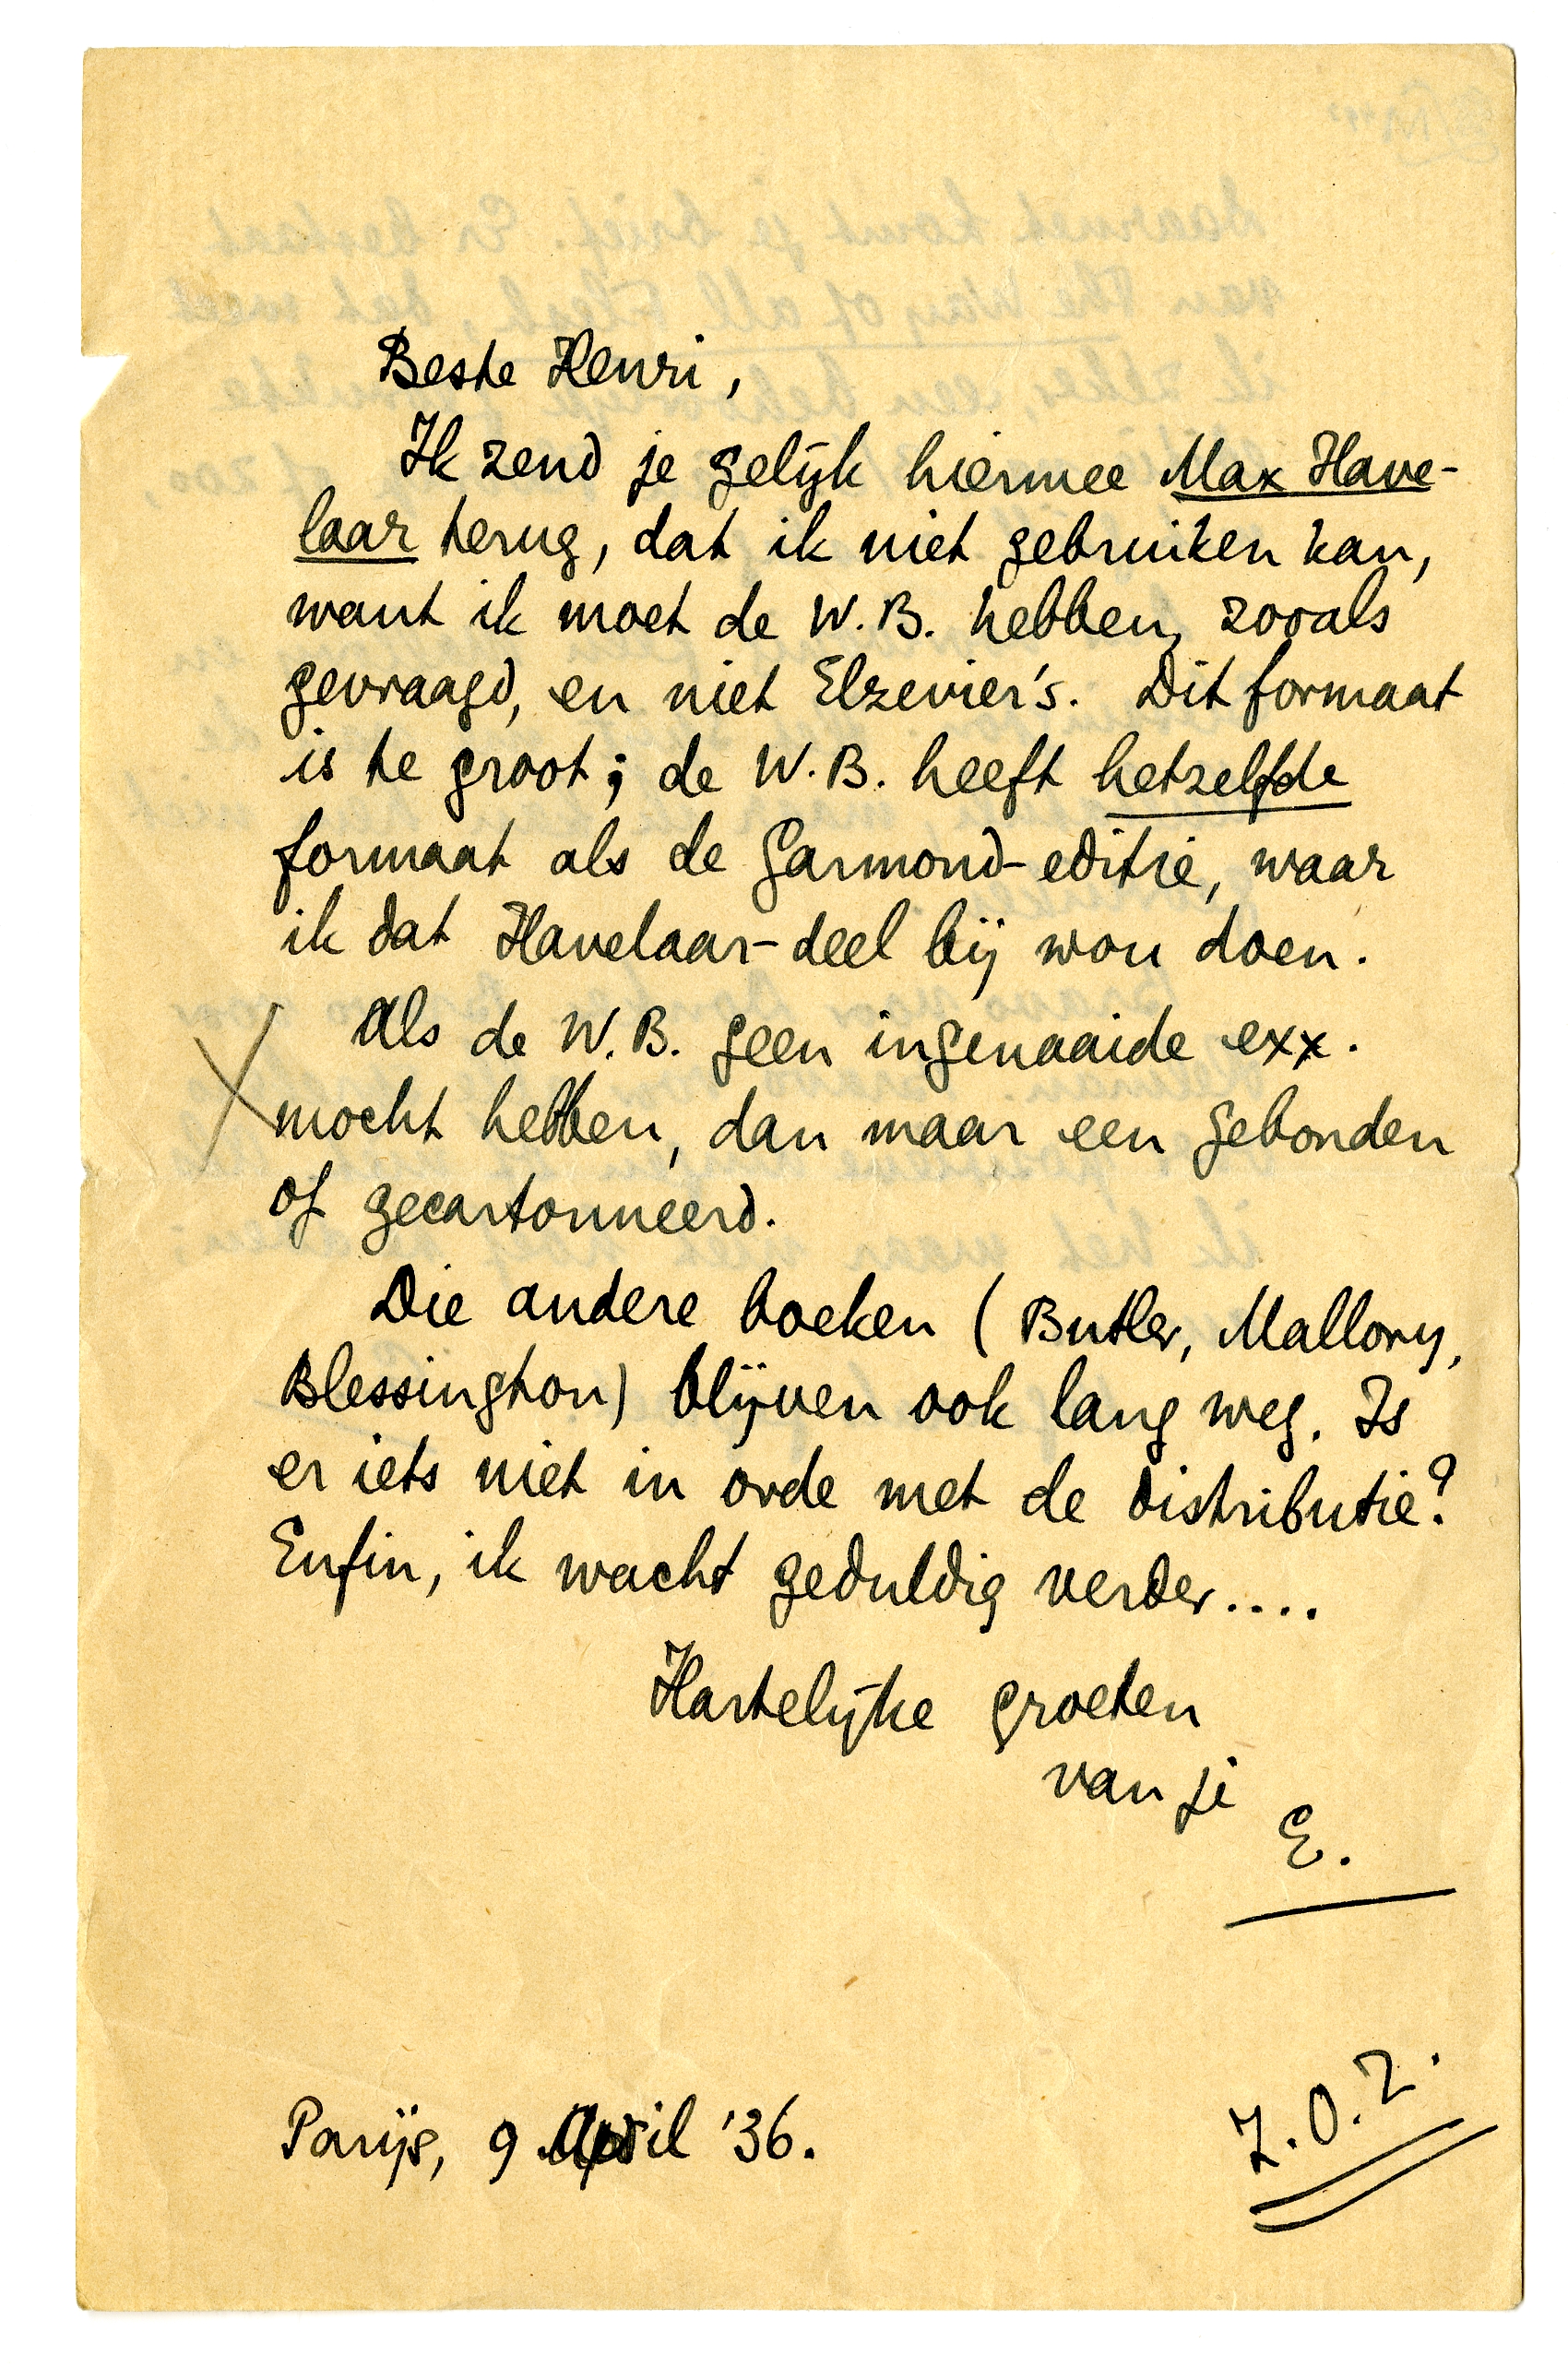 Beste Henri,
Ik zend je gelijk hiermee Max Have-
laar terug, dat ik niet gebruiken kan,
want ik moet de W.B. hebben, zooals
gevraagd, en niet Elzevier's. Dit formaat
is te groot; de W.B. heeft hetzelfde
formaat als de Garmond-editie, waar
ik dat Havelaar-deel bij wou doen.
Als de W.B. geen ingenaaide exx.
mocht hebben, dan maar een gebonden
of gecartonneerd.
Die andere boeken (Butler, Mallory,
Blessington) blijven ook lang weg. Is
er iets niet in orde met de distributie?
Enfin, ik wacht geduldig verder....
Hartelijke groeten
van je
E.
Parijs, 9 April '36.
Z.O.Z.